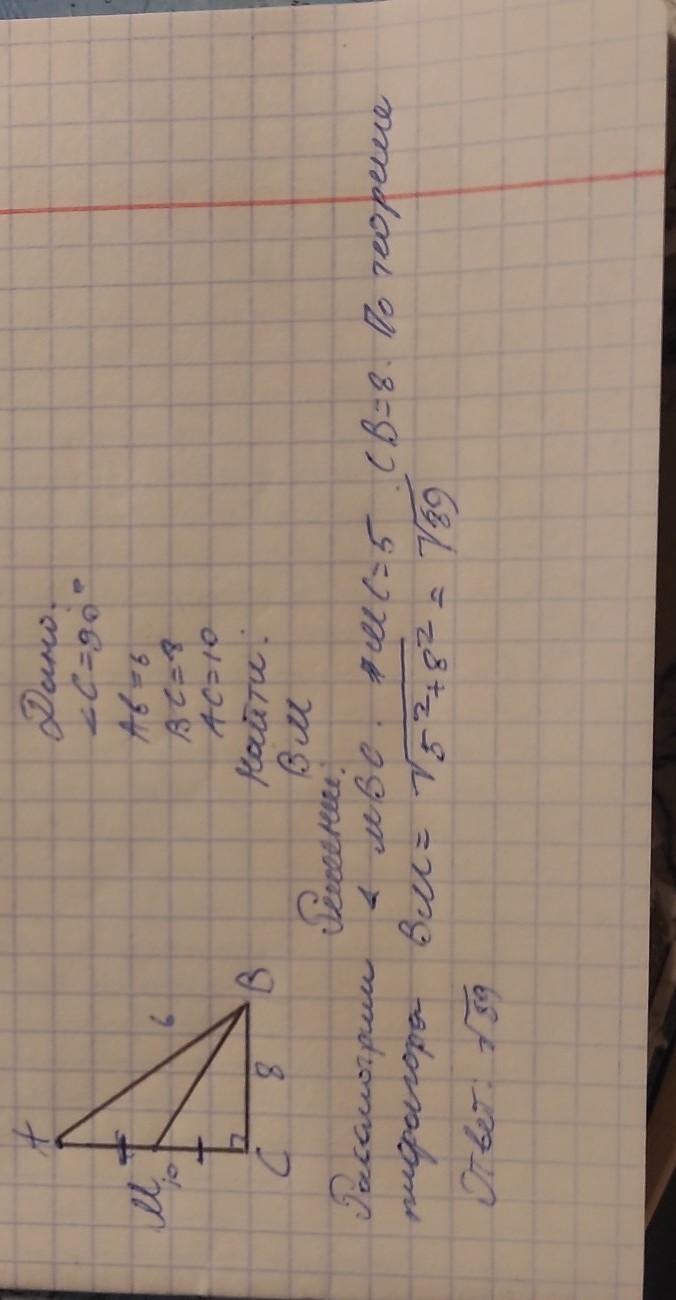 Дано:
∠C=90°
AB=6
BC=8
AC=10
Найти:
BM
A
M
10
6
C
8
B
Решение:
Рассмотрим ∢ MBC. MC=5 CB=8. По теореме
пифагора BM= √5²+8² = √89
Ответ: √89